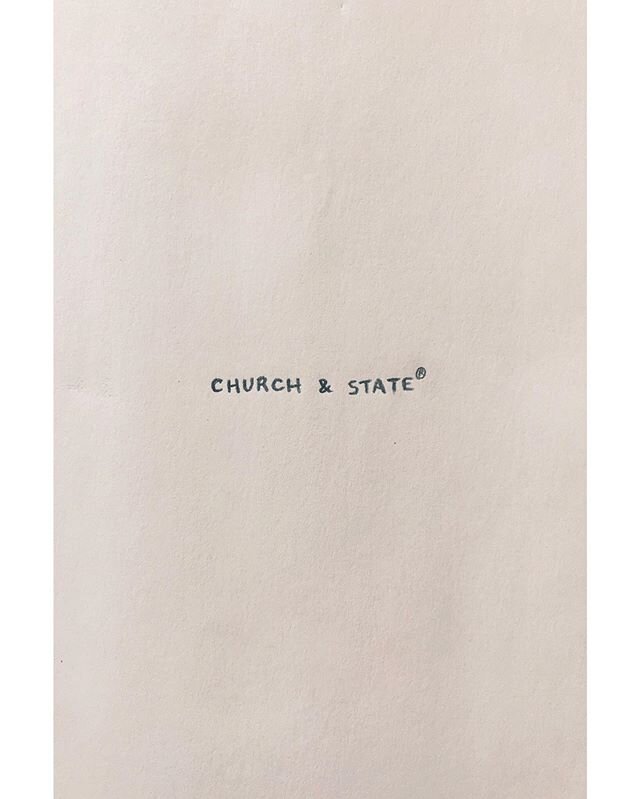 CHURCH & STATE®